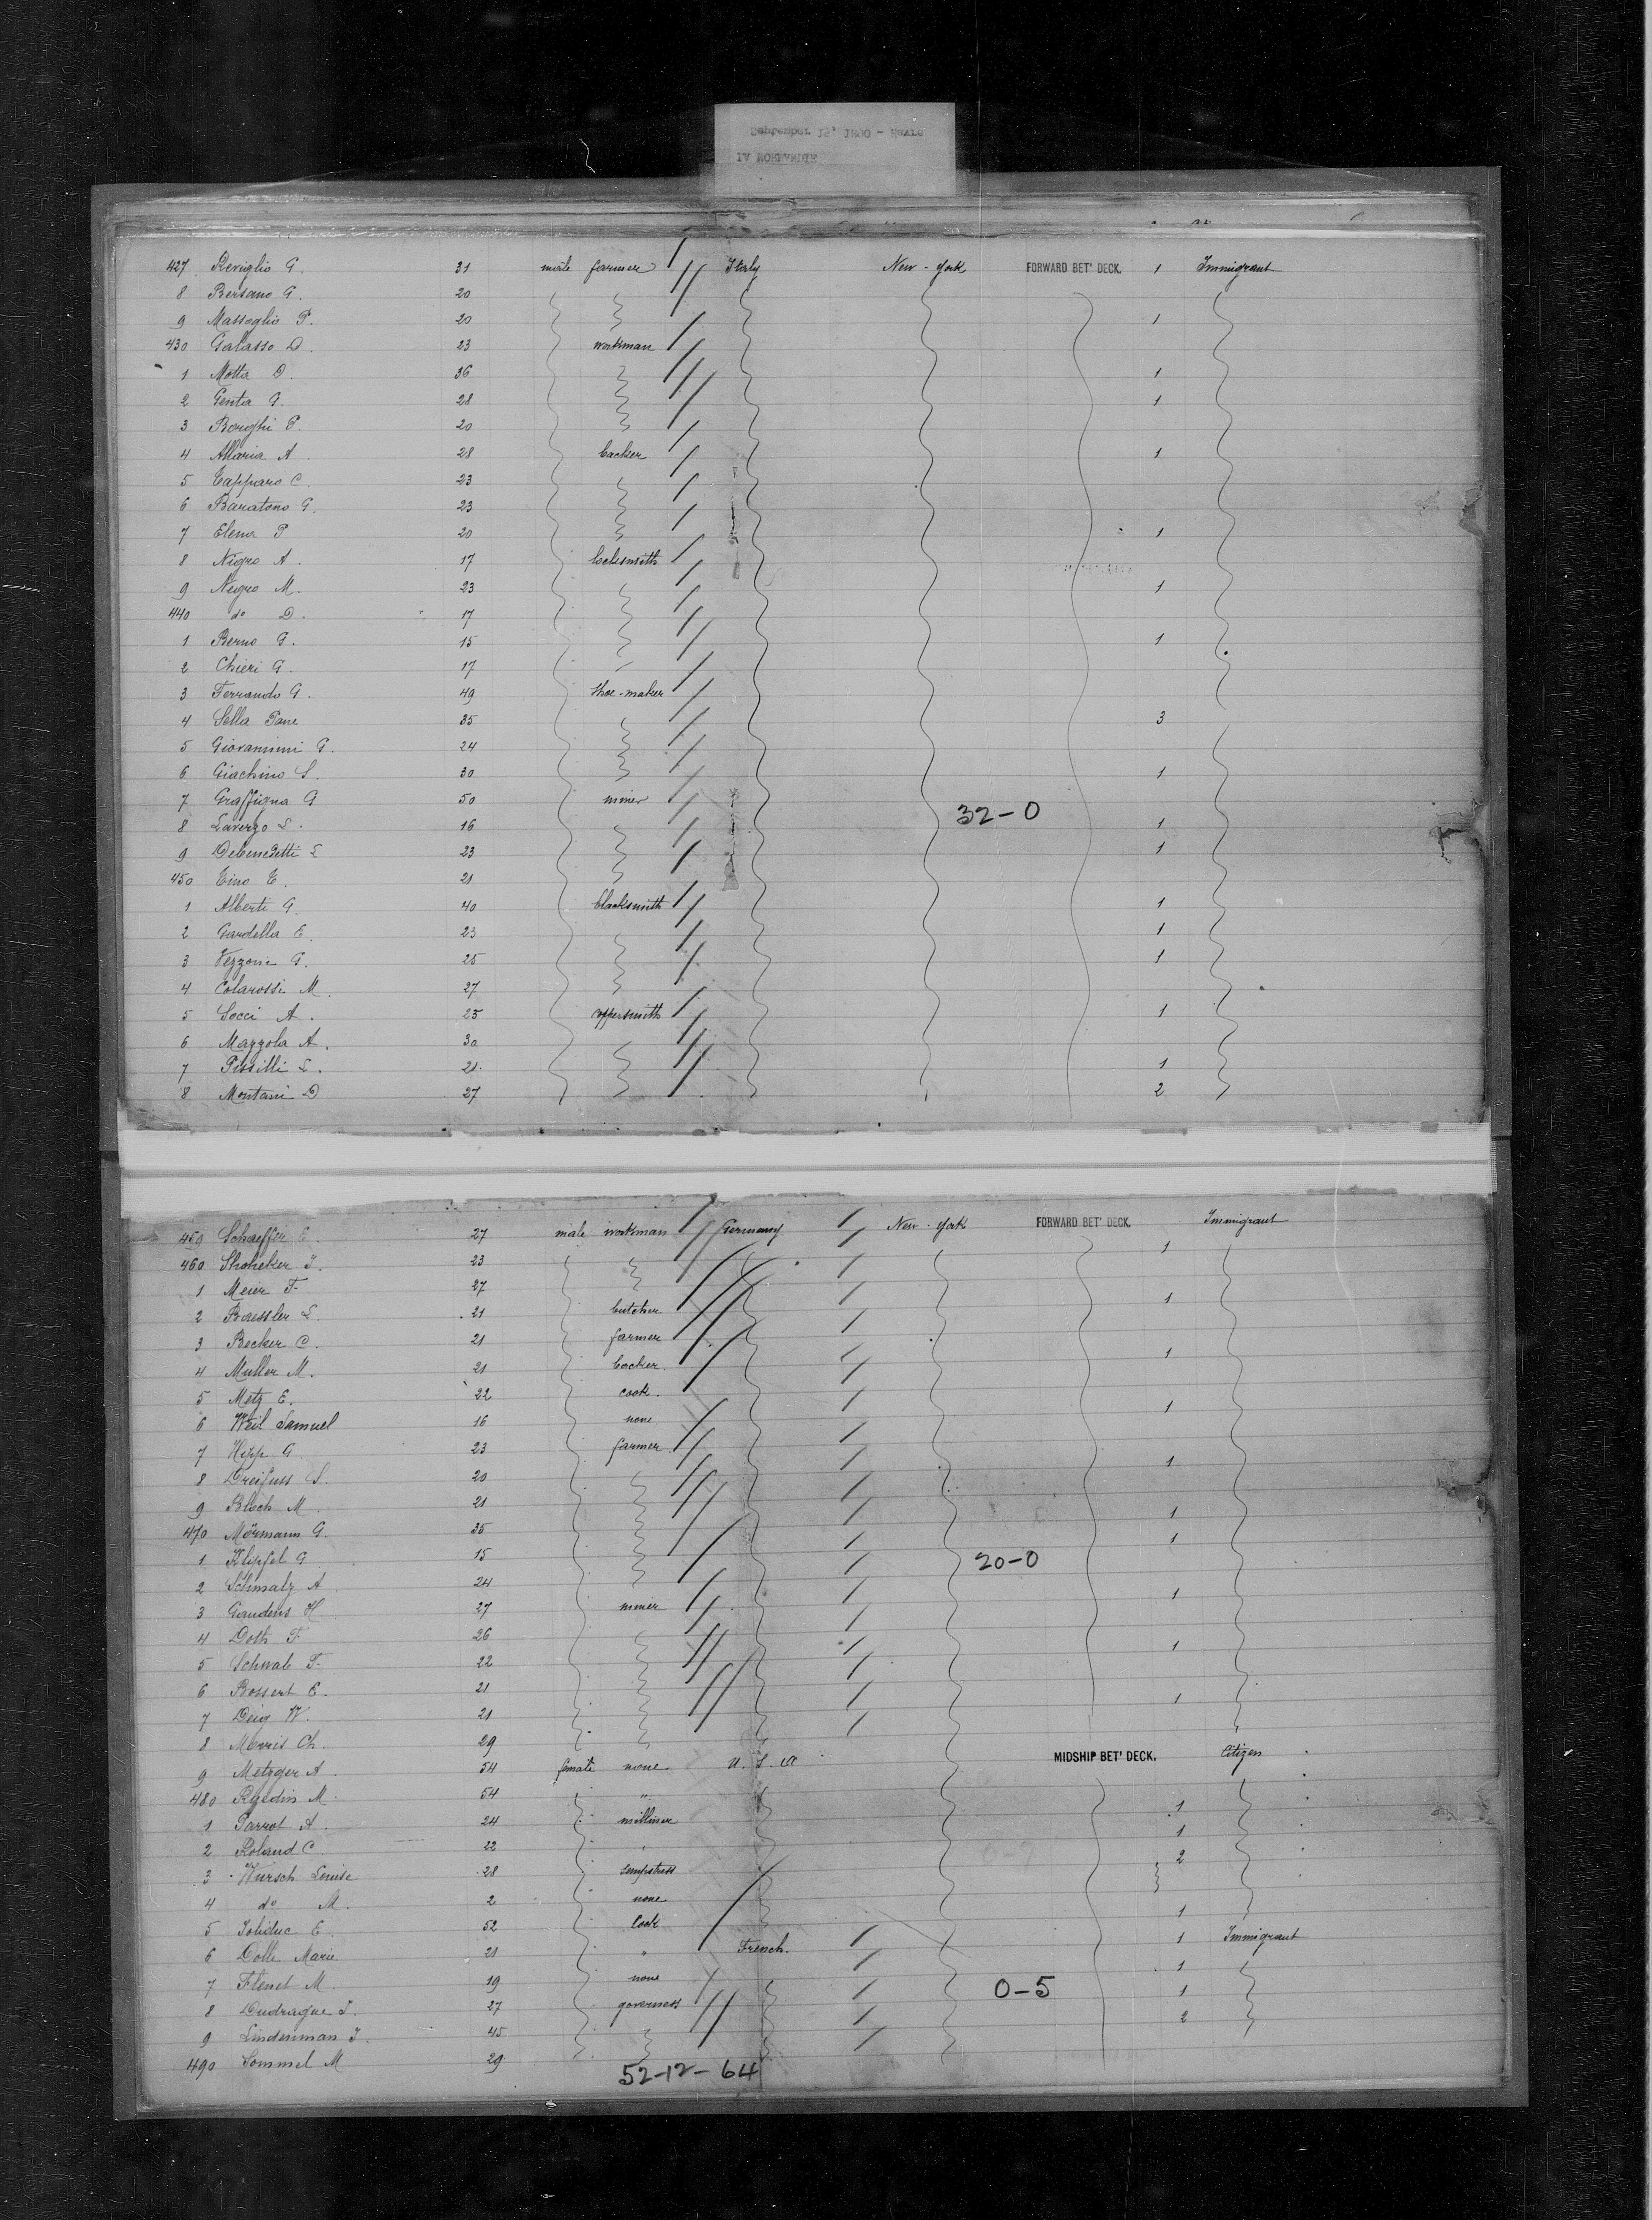 September 15, 1890 - Havre
LA NORMANDIE
427 Reviglio G. 31 male farmer Italy New-York FORWARD BET' DECK. 1 Immigrant
8 Bersano G. 20
9 Massoglio P. 20 1
430 Galasso D. 23 workman
1 Motta D. 36 1
2 Genta G. 28 1
3 Borghi P. 20
4 Allaria A. 28 backer 1
5 Tapparo C. 23
6 Baratono G. 23
7 Elena P 20 1
8 Nigro A. 17 locksmith
9 Negro M. 23 1
440 do D. 17
1 Berno G. 15 1
2 Chieri G. 17
3 Ferrando G. 49 shoe-maker
4 Sella Pane 35 3
5 Giovannini G. 24
6 Giachino S. 30 1
7 Graffigna G 50 miner 32-0
8 Laverzo L. 16 1
9 Debenedetti L 23 1
450 Tino T. 21
1 Alberti G. 40 blacksmith 1
2 Gardella E. 23 1
3 Vezzoni G. 25 1
4 Colarossi M. 27
5 Socci A. 25 coppersmith 1
6 Mazzola A. 30
7 Pissilli L. 21 1
8 Montani D 27 2
459 Schaeffer E. 27 male workman Germany New-York FORWARD BET' DECK. Immigrant
460 Shoheker J. 23 1
1 Meier F. 27
2 Roessler L. 21 butcher 1
3 Becker C. 21 farmer
4 Muller M. 21 backer 1
5 Metz E. 22 cook
6 Weil Samuel 16 none 1
7 Hipp G 23 farmer
8 Dreifuss S. 20 1
9 Bloch M. 21
470 Mörmann G. 35 1
1 Klipfel G 15 20-0 1
2 Schmalz A. 24
3 Gaudens H 27 miner 1
4 Doth F. 26
5 Schwab F. 22 1
6 Bossert E. 21
7 Deig W. 21 1
8 Morris Ch. 29
9 Metzger A. 54 female none U.S.A MIDSHIP BET' DECK. Citizen
480 M. 54 " 1
1 Parrot A. 24 milliner 1
2 Roland C. 22 2
3 Wursch Louise 28 sempstress
4 do M. 2 none 1
5 E. 52 Cook 1 Immigrant
6 Dolle Marie 21 " French. 1
7 Flenet M. 19 none 0-5 1
8 Dudrague J. 27 governess 2
9 Lindenman J. 45
490 Sommel M 29
52-12-64